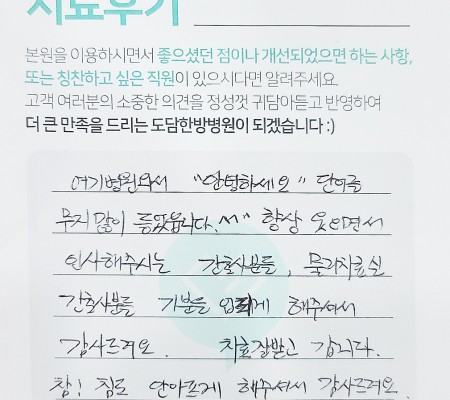 치료후기
본원을 이용하시면서 좋으셨던 점이나 개선되었으면 하는 사항,
또는 칭찬하고 싶은 직원이 있으시다면 알려주세요.
고객 여러분의 소중한 의견을 정성껏 귀담아듣고 반영하여
더 큰 만족을 드리는 도담한방병원이 되겠습니다 :)
여기병원와서 "안녕하세요" 단어를
무지많이 들었읍니다.^^ 항상 웃으면서
인사해주시는 간호사분들, 물리치료실
간호사분들 기분좋 해주셔서
감사드려요. 치료잘받고 갑니다.
참! 침도 안아프게 해주셔서 감사드려요.